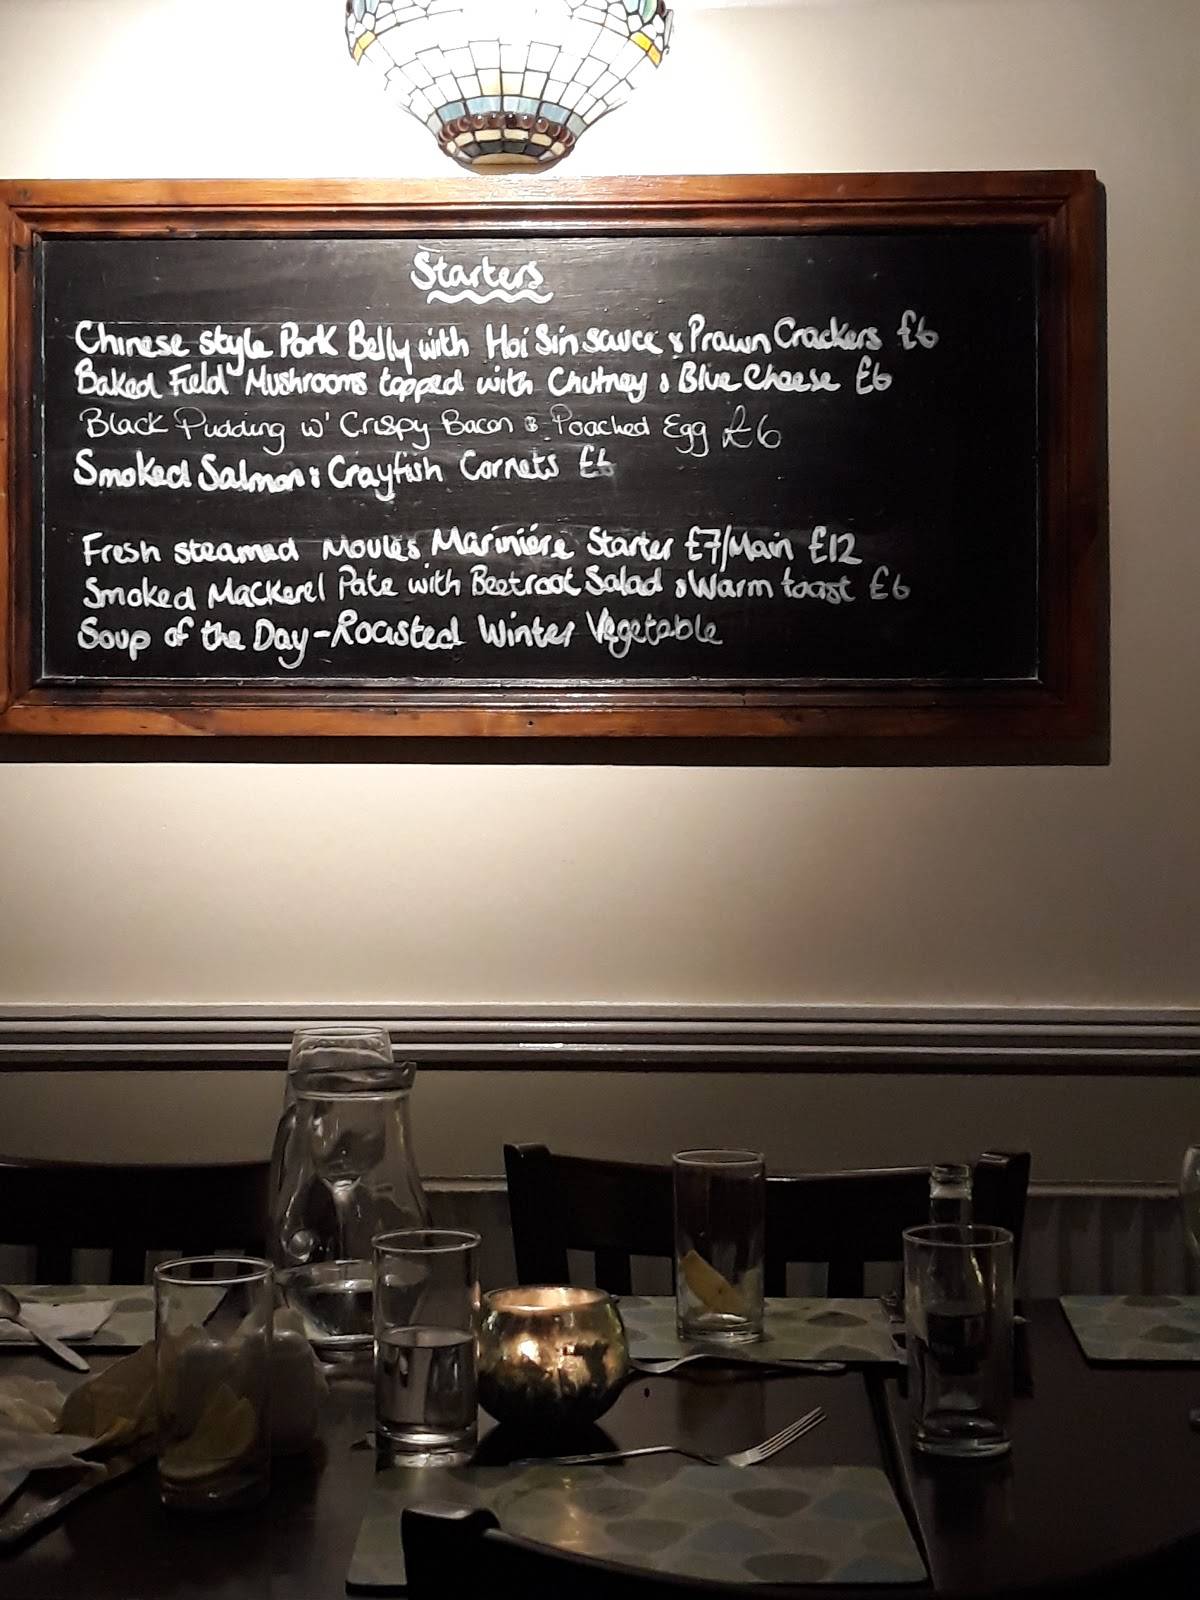 Starters
Chinese style Pork Belly with Hoi Sin sauce & Prawn Crackers £6
Baked Field Mushrooms topped with Chutney & Blue Cheese £6
Black Pudding w' Crispy Bacon & Poached Egg £6
Smoked Salmon & Crayfish Cornets £6
Fresh steamed Moules Mariniére Starter £7/Main £12
Smoked Mackerel Pate with Beetroot Salad & Warm toast £6
Soup of the Day - Roasted Winter Vegetable